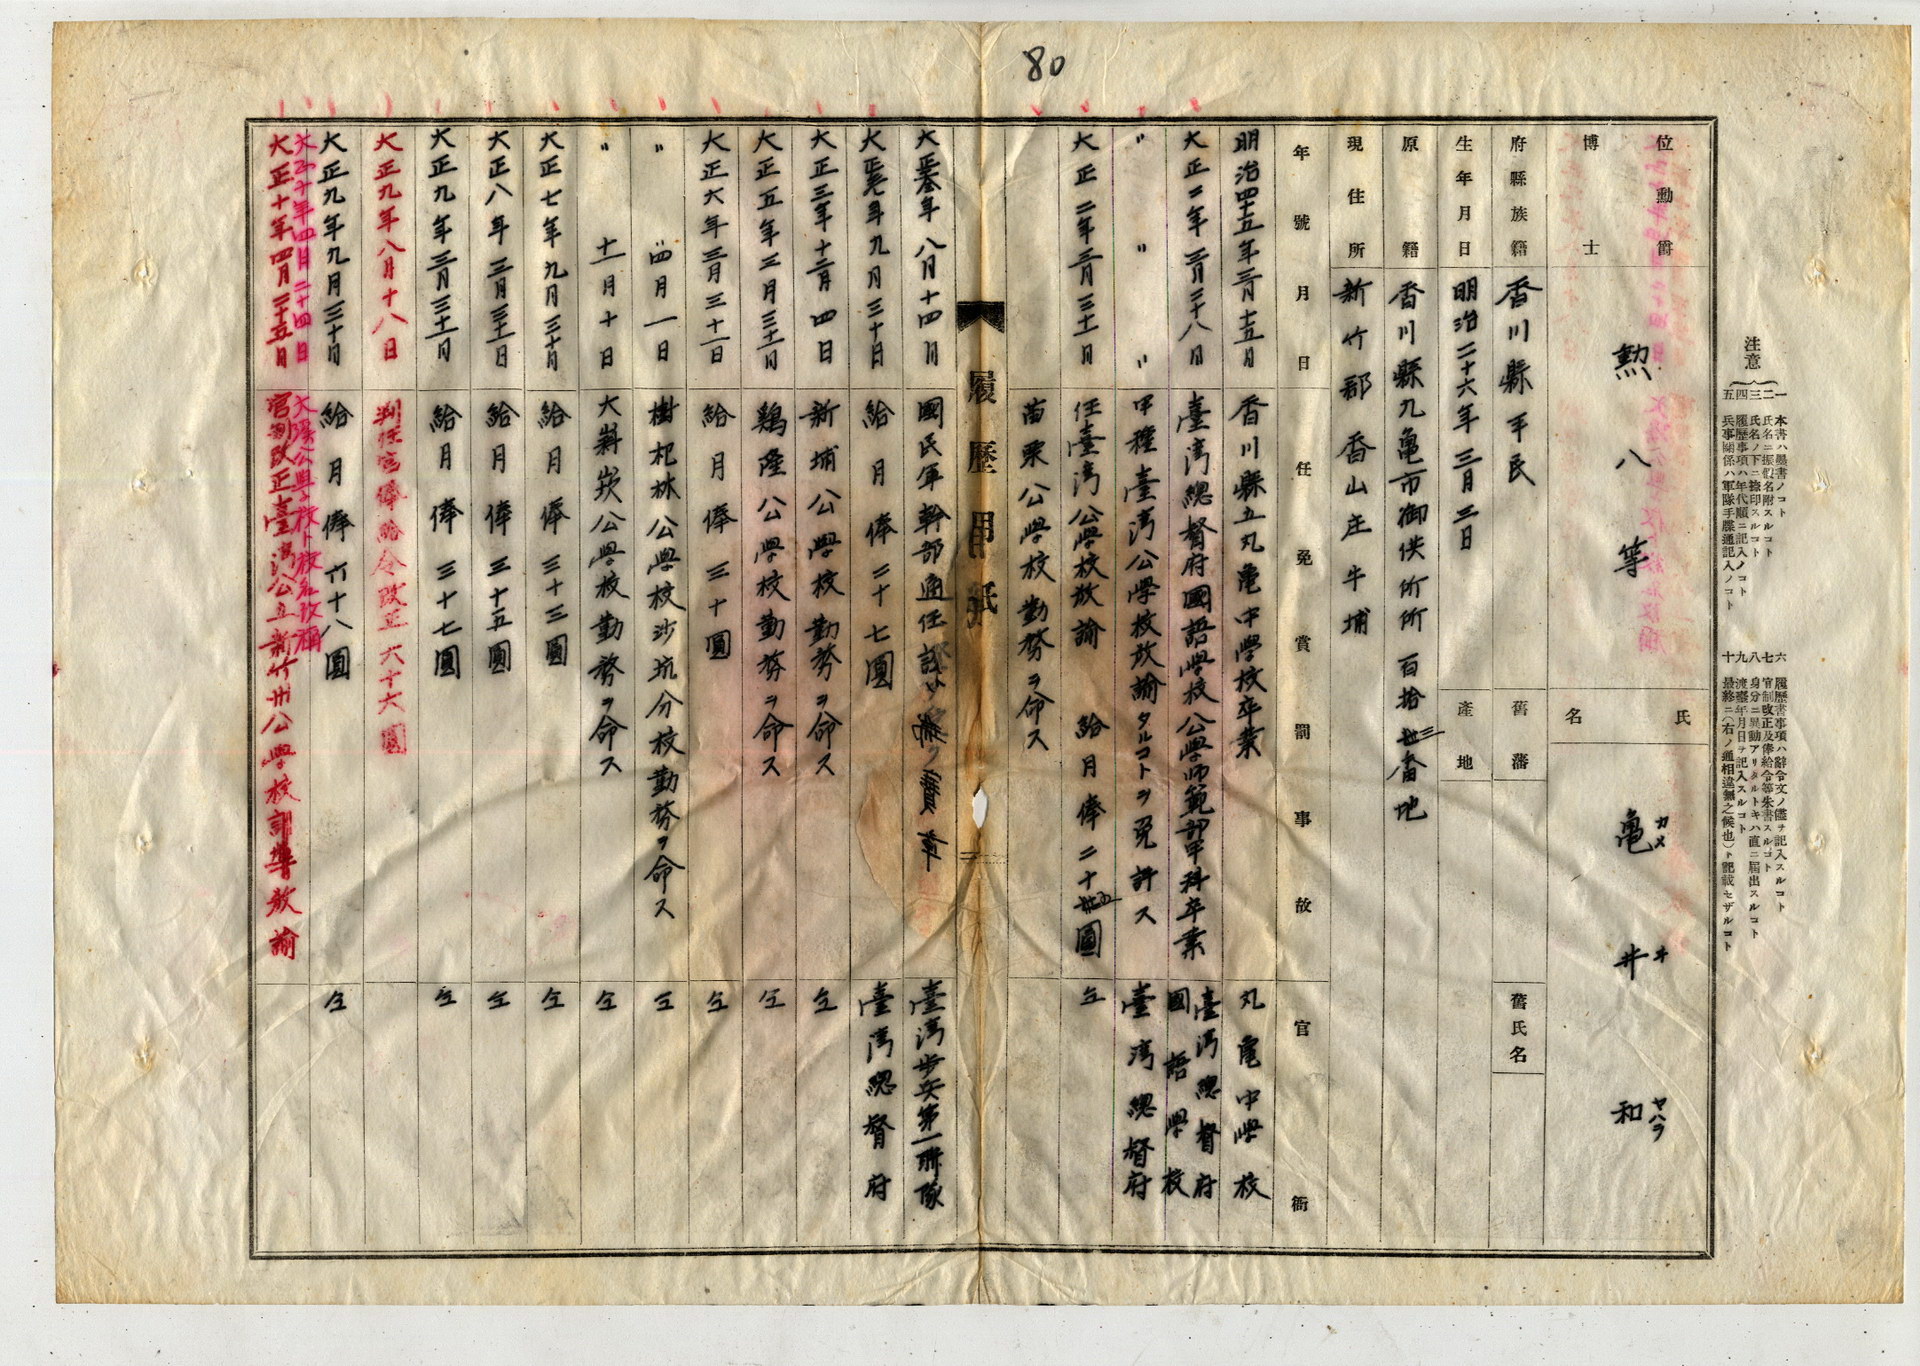 80
注意
一 本書ハ墨書ノコト
二 氏名ニ振假名附スルコト
三 氏名ノ下ニ捺印スルコト
四 履歷事項ハ年代順ニ記入ノコト
五 兵事關係ハ軍隊手牒通記入ノコト
六 履歷書事項ハ辭令文ノ儘ヲ記入スルコト
七 官制改正及俸給令等朱書スルコト
八 身分ニ異動アリタルトキハ直ニ屆出スルコト
九 渡臺年月日ヲ記入スルコト
十 最終ニ(右ノ通相違無之候也)ト記載セザルコト
位勳爵
博士
勲八等
氏名
亀井和
カメ井ヤハラ
府縣族籍
香川縣平民
舊藩
舊氏名
生年月日
明治二十六年三月三日
產地
原籍
香川縣九亀市御供所 百拾 番地
現住所
新竹郡香山庄牛埔
年號月日
任免賞罰事故
官衙
明治四十五年三月十五日 香川縣立丸亀中學校卒業 丸亀中學校
大正二年三月二十八日 臺灣總督府國語學校公學師範部甲科卒業 臺灣總督府國語學校
〃 〃 〃 甲種臺灣公學校教諭タルコトヲ免許ス 臺灣總督府
大正二年三月三十一日 任臺灣公學校教諭 給月俸二十 圓 仝
苗栗公學校勤務ヲ命ス
履歷用紙
大正 年八月十四日 國民軍幹部適任證 臺灣步兵第一聯隊
大正 年九月三十日 給月俸二十七圓 臺灣總督府
大正三年十二月四日 新埔公學校勤務ヲ命ス 仝
大正五年三月三十一日 鷄隆公學校勤務ヲ命ス 仝
大正六年三月三十一日 給月俸三十圓 仝
〃 〃四月一日 樹杞林公學校沙坑分校勤務ヲ命ス 仝
〃 十一月十日 大嵙崁公學校勤務ヲ命ス 仝
大正七年九月三十日 給月俸三十三圓 仝
大正八年三月三十一日 給月俸三十五圓 仝
大正九年三月三十一日 給月俸三十七圓 仝
大正九年八月十八日 判任官俸給令改正 六十六圓
大正九年九月三十日 給月俸六十八圓 仝
大正十年四月二十四日 大溪公學校ト校名改稱
大正十年四月二十五日 官制改正臺灣公立新竹州公學校訓導教諭